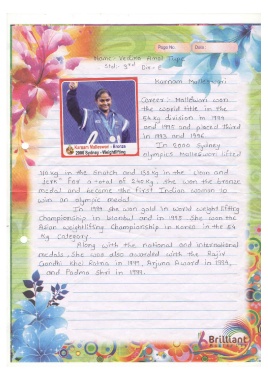 Page No. Date:
Name: Vedika Amol
Std: 3rd Div: C
Karnam Malleswari
Career: Malleswari won
the world title in the
54kg division in 1994
and 1995 and placed third
in 1993 and 1996.
In 2000 Sydney
olympics Malleswari lifted
Karnam Malleswari - Bronze
2000 Sydney - Weightlifting
110 kg in the snatch and 130 kg in the "clean and
jerk" for a total of 240kg. She won the bronze
medal and became the first Indian woman to
win an olympic medal.
In 1994 she won gold in world weight lifting
Championship in Istanbul and in 1995 she won the
Asian weightlifting Championship in Korea in the 54
kg category.
Along with the national and international
medals she was also awarded with the Rajiv
Gandhi Khel Ratna in 1999, Arjuna Award in 1994,
and Padma Shri in 1999.
Brilliant